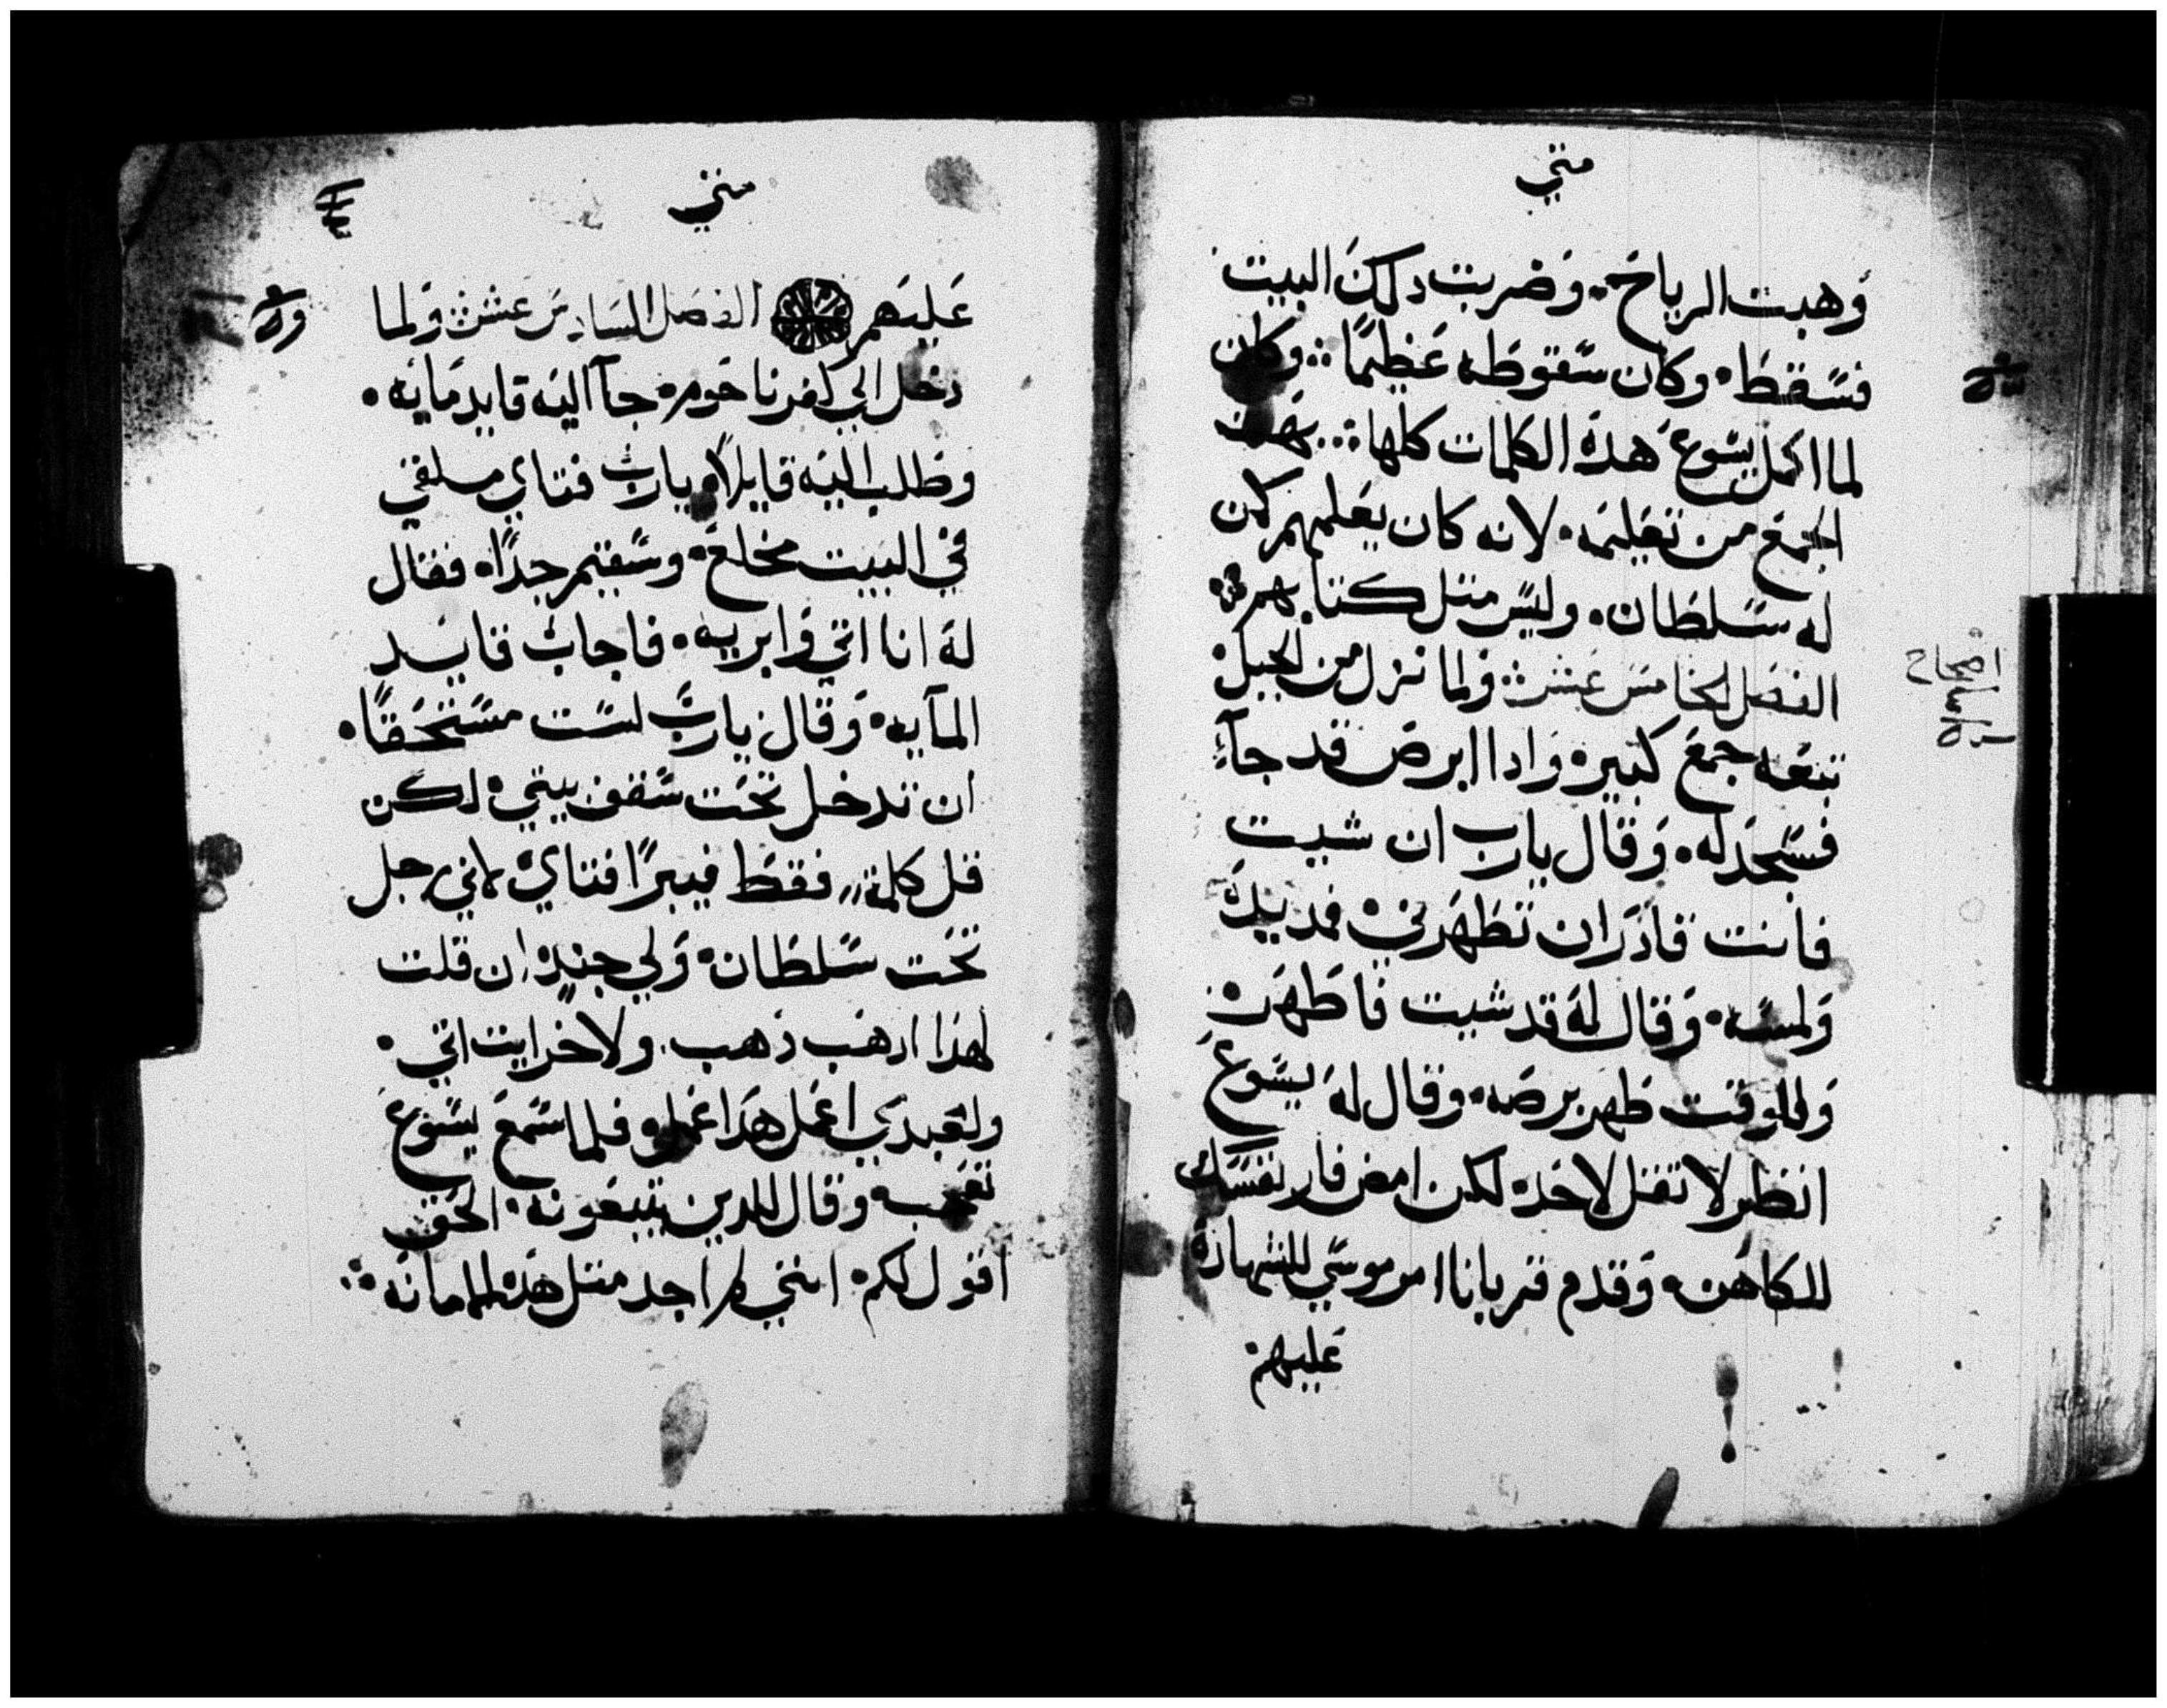 متي
وهبت الرياح. وضربت دلك البيت
فسقط. وكان سقوطه عظيمًا ∴ وكان
لما اكمل يسوع هده الكلمات كلها ∴ بهت
الجمع من تعليمه. لانه كان يعلمهم كمن
له سلطان. وليس متل كتابهم ∴
الفصل الخامس عشر ولما نزل من الجبل
تبعه جمع كتير. وادا ابرص قد جآء
فسجد له. وقال يارب ان شيت
فانت قادر ان تطهرني. فمد يده
ولمسه. وقال له قد شيت فاطهر.
وللوقت طهر برصه. وقال له يسوع
انظر لا تقل لاحد. لكن امض فار نفسك
للكاهن. وقدم قربانا امر موسي للشهادة
عليهم
اصحاح
متي
عليهم الفصل السادس عشر ولما
دخل الي كفرناحوم. جآ اليه قايد مايه.
وطلب اليه قايلاً. يارب فتاي ملقي
في البيت مخلع. وسقيم جدًا. فقال
له انا اتي وابريه. فاجاب قايد
المآيه. وقال يارب لست مستحقًا.
ان تدخل تحت سقف بيتي. لكن
قل كلمة فقط فيبرًا فتاي. لاني رجل
تحت سلطان. ولي جند. ان قلت
لهذا ادهب ذهب. ولاخر ايت اتي.
ولعبدي اعمل هدا عمل. فلما سمع يسوع
تعجب. وقال للدين يتبعونه. الحق
اقول لكم. انني لم اجد متل هده الامانه ∴